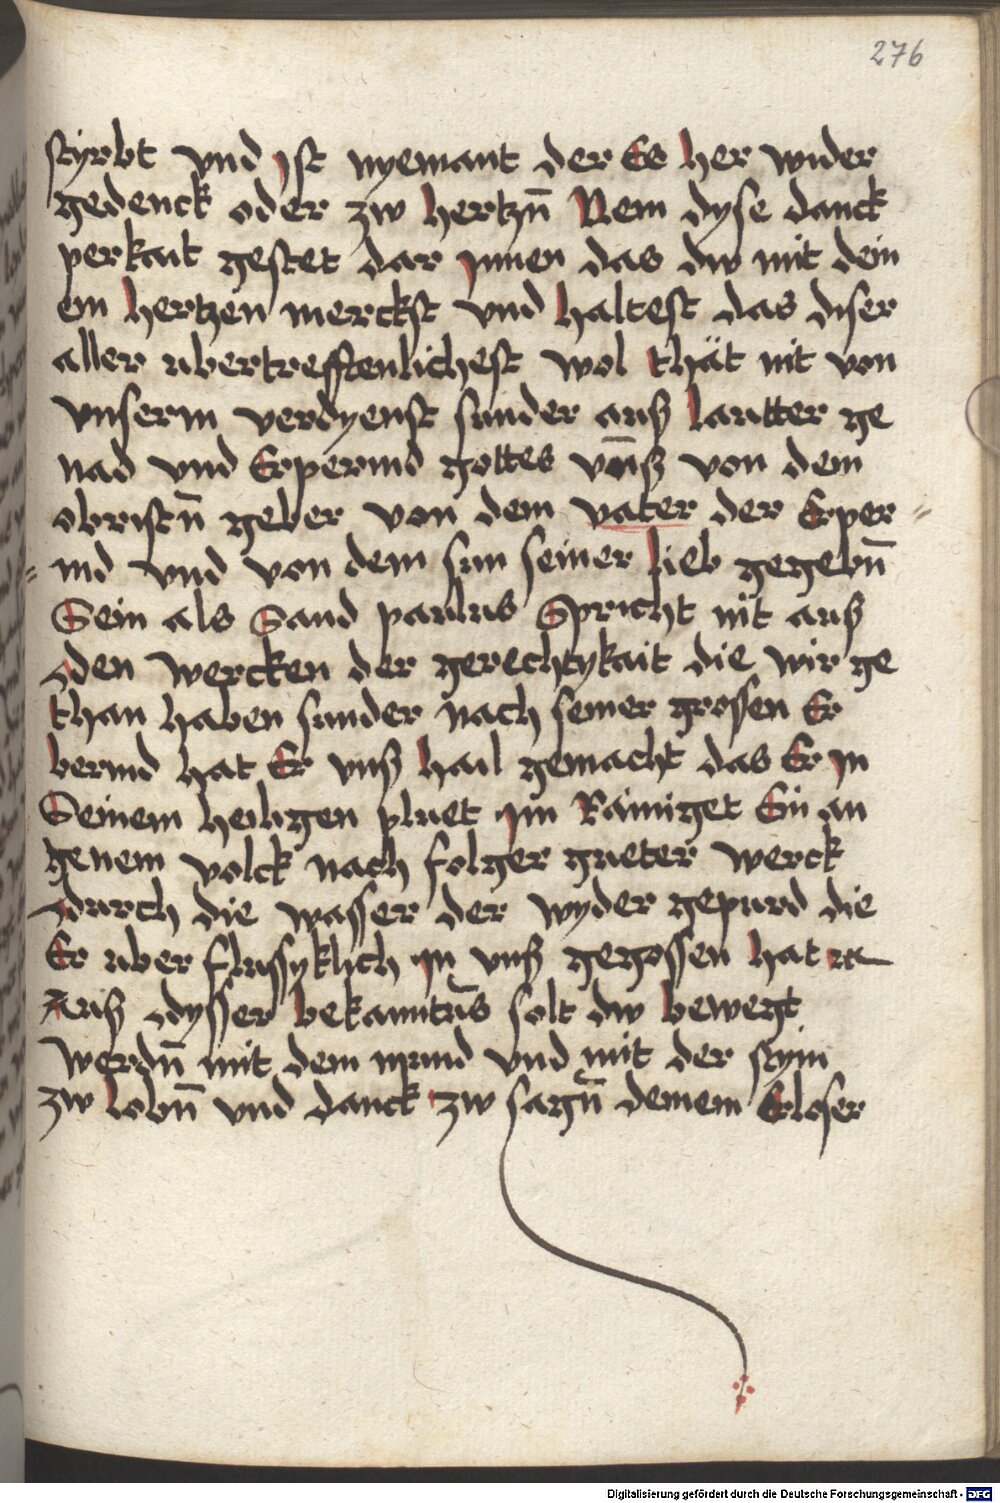 276
styrbt vnd jst nyemant der Es her wider
gedenck oder zw hertzn̄ Nem dyse danck
perkait gestet dar jnnen das dw mit dein
em hertzen merckst vnd haltest das diser
aller ubertreffenlichest wol thät nit von
vnserm verdyenst sunder auß lautter ge
nad vnd Erpermd gottes vn̄ß von dem
obristn̄ geber von dem vater der Erper⸗
⸗md vnd von dem sun seiner lieb gegebn̄
Sein als Sand paulus Spricht nit auß
den wercken der gerechtykait die wir ge
than haben sunder nach seiner grossen Er
bermd hat Er vnß hail gemacht das Er jn
Seinem heiligen pluet jm Rainiget Ein an
genem volck nach folger gueter werck
durch die wasser der wyder gepurd die
Er uber flussyklich jn vnß gegossen hat rc
Auß dysser bekanntn̄s solt dw bewegt
werdn̄ mit dem mund vnd mit der stym
zw lobn̄ vnd danck zw sagn̄ deinem Erloser
Digitalisierung gefördert durch die Deutsche Forschungsgemeinschaft - DFG